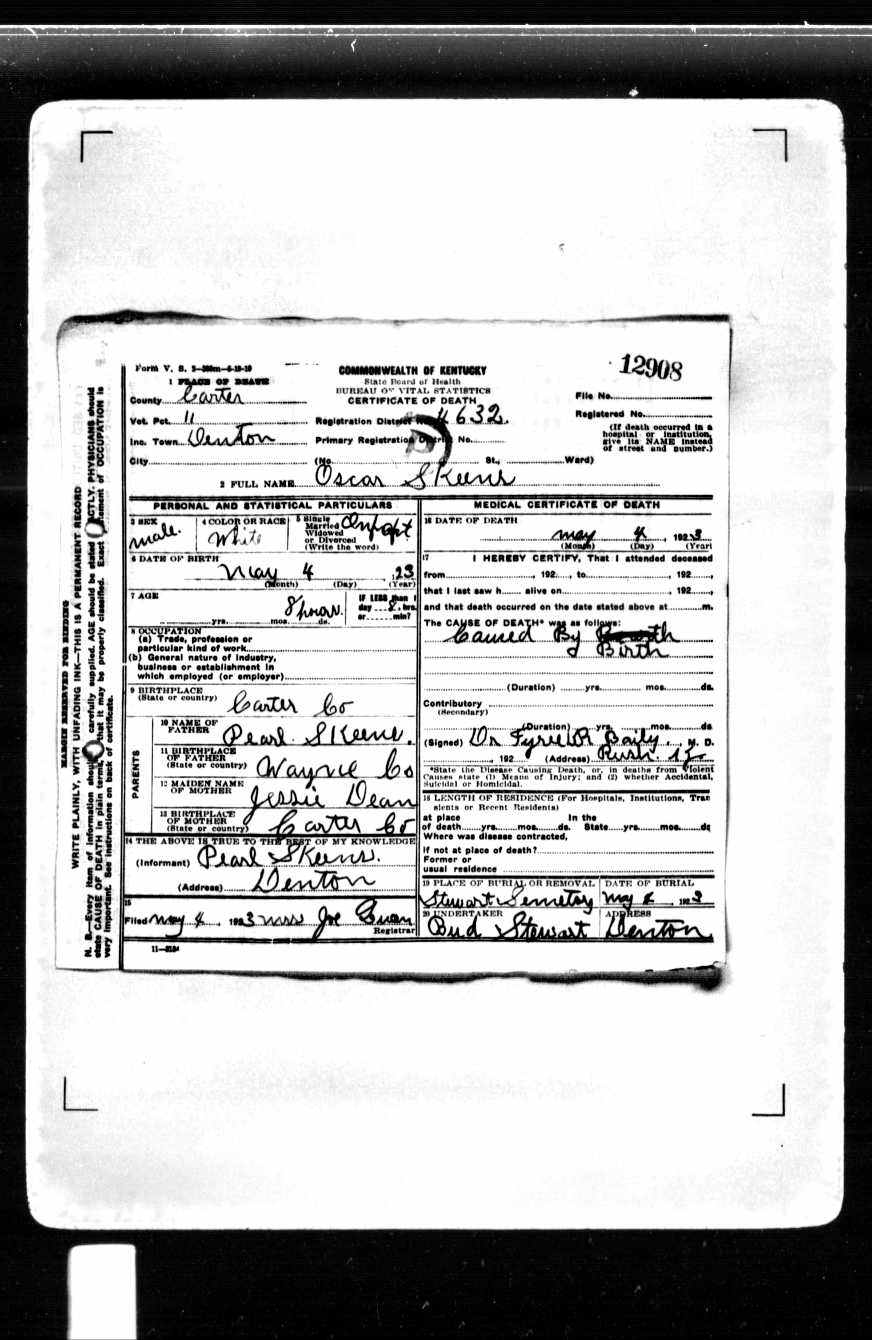 Form V. S. 3-300m-6-19-19
COMMONWEALTH OF KENTUCKY
12908
1 PLACE OF DEATH
State Board of Health
BUREAU OF VITAL STATISTICS
CERTIFICATE OF DEATH
County Carter
File No.
Vot. Pct. 11
Registration District No. 4632.
Registered No.
Inc. Town Denton
Primary Registration District No.
(If death occurred in a hospital or institution, give its NAME instead of street and number.)
City
(No. St., Ward)
2 FULL NAME Oscar SKeens
PERSONAL AND STATISTICAL PARTICULARS
3 SEX male.
4 COLOR OR RACE White
5 Single Married Widowed or Divorced (Write the word)
6 DATE OF BIRTH
May 4, 23
(Month) (Day) (Year)
7 AGE
8 hours.
yrs. mos. ds.
IF LESS than 1 day 8. hrs. or min?
8 OCCUPATION
(a) Trade, profession or particular kind of work
(b) General nature of industry, business or establishment in which employed (or employer)
9 BIRTHPLACE
(State or country) Carter Co
PARENTS
10 NAME OF FATHER Pearl SKeens.
11 BIRTHPLACE OF FATHER (State or country) Wayne Co
12 MAIDEN NAME OF MOTHER Jessie Dean
13 BIRTHPLACE OF MOTHER (State or country) Carter Co
14 THE ABOVE IS TRUE TO THE BEST OF MY KNOWLEDGE
(Informant) Pearl SKeens.
(Address) Denton
15
Filed May 4, 1923 Joe
Registrar
11-3184
MEDICAL CERTIFICATE OF DEATH
16 DATE OF DEATH
May 4, 1923
(Month) (Day) (Year)
17 I HEREBY CERTIFY, That I attended deceased
from , 192 , to , 192 ,
that I last saw h alive on , 192 ,
and that death occurred on the date stated above at m.
The CAUSE OF DEATH* was as follows:
Caused By
Birth
(Duration) yrs. mos. ds.
Contributory
(Secondary)
(Duration) yrs. mos. ds
(Signed) Dr Baily, M. D.
, 192 (Address) Rush
*State the Disease Causing Death, or, in deaths from Violent Causes state (1) Means of Injury; and (2) whether Accidental, Suicidal or Homicidal.
18 LENGTH OF RESIDENCE (For Hospitals, Institutions, Transients or Recent Residents)
at place In the
of death yrs. mos. ds. State yrs. mos. ds
Where was disease contracted,
if not at place of death?
Former or
usual residence
19 PLACE OF BURIAL OR REMOVAL
DATE OF BURIAL
Stewart Semetery May 1923
20 UNDERTAKER
ADDRESS
Bud Stewart Denton
MARGIN RESERVED FOR BINDING
WRITE PLAINLY, WITH UNFADING INK—THIS IS A PERMANENT RECORD
N. B.—Every item of information should be carefully supplied. AGE should be stated EXACTLY. PHYSICIANS should
state CAUSE OF DEATH in plain terms, that it may be properly classified. Exact statement of OCCUPATION is
very important. See instructions on back of certificate.